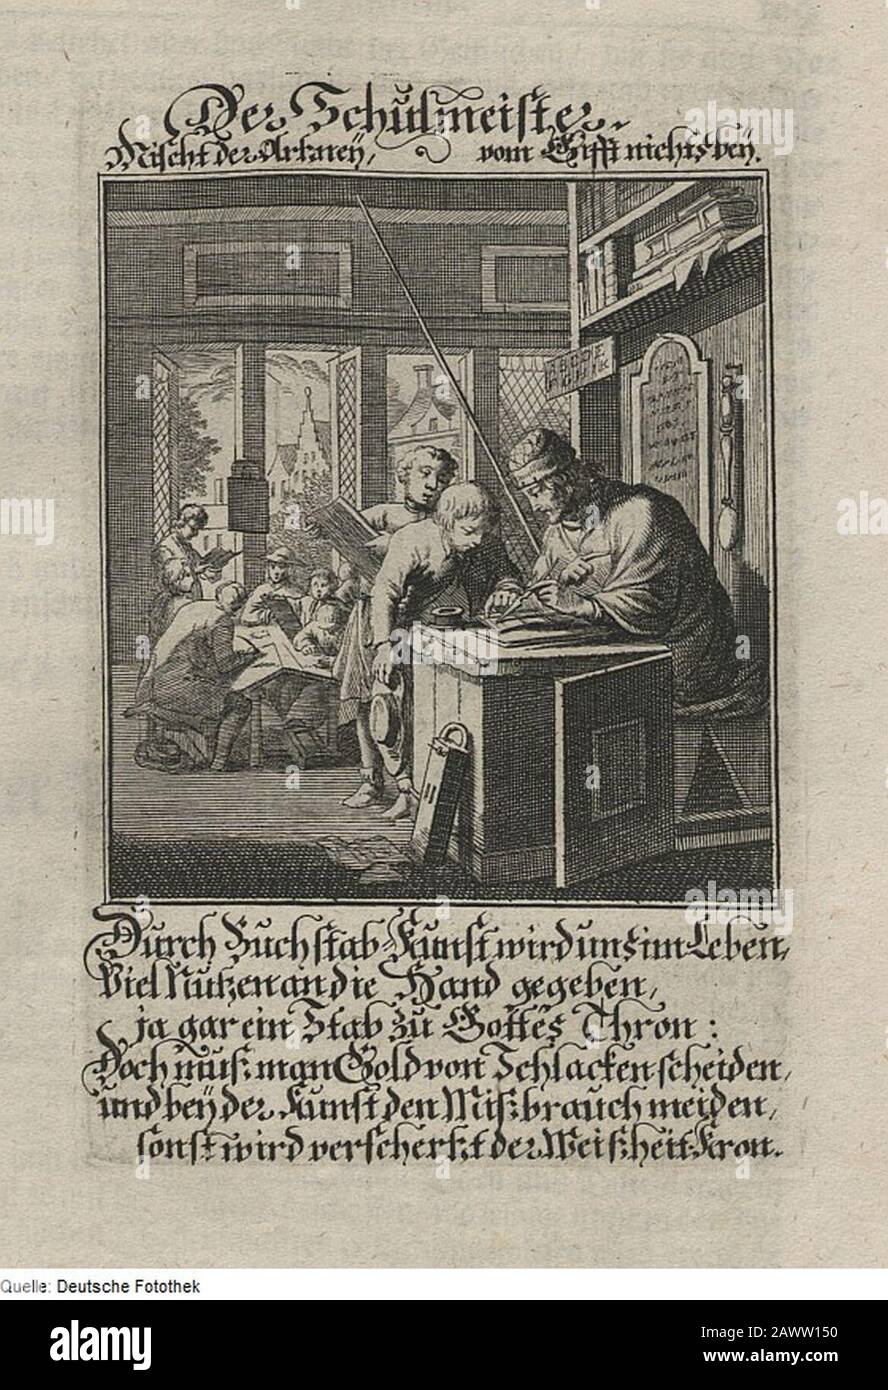 Der Schulmeister.
Mischt der Artzney, vom Gifft nichts bey.
A B C D E
Durch Buchstab-Kunst wird uns im Leben,
Viel Nutzen an die Hand gegeben,
ja gar ein Stab zu Gottes Thron:
Doch muß man Gold von Schlacken scheiden,
und bey der Kunst den Mißbrauch meiden,
sonst wird verschertzt der Weißheit Kron.
Quelle: Deutsche Fotothek
alamy
Image ID: 2AWW150
www.alamy.com